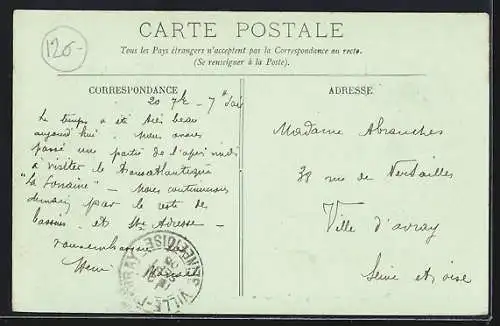 120-
CARTE POSTALE
Tous les Pays étrangers n'acceptent pas la Correspondance au recto.
(Se renseigner à la Poste).
CORRESPONDANCE
20 7bre - 7h soir
Le temps a été très beau
aujourd'hui. Nous avons
passé une partie de l'après midi
à visiter le transatlantique
"La Lorraine" - Nous continuerons
demain par le reste des
bassins et Ste Adresse -
ADRESSE
Madame Abranches
38 rue de Versailles
Ville d'avray
Seine et oise
VILLE-D'AVRAY